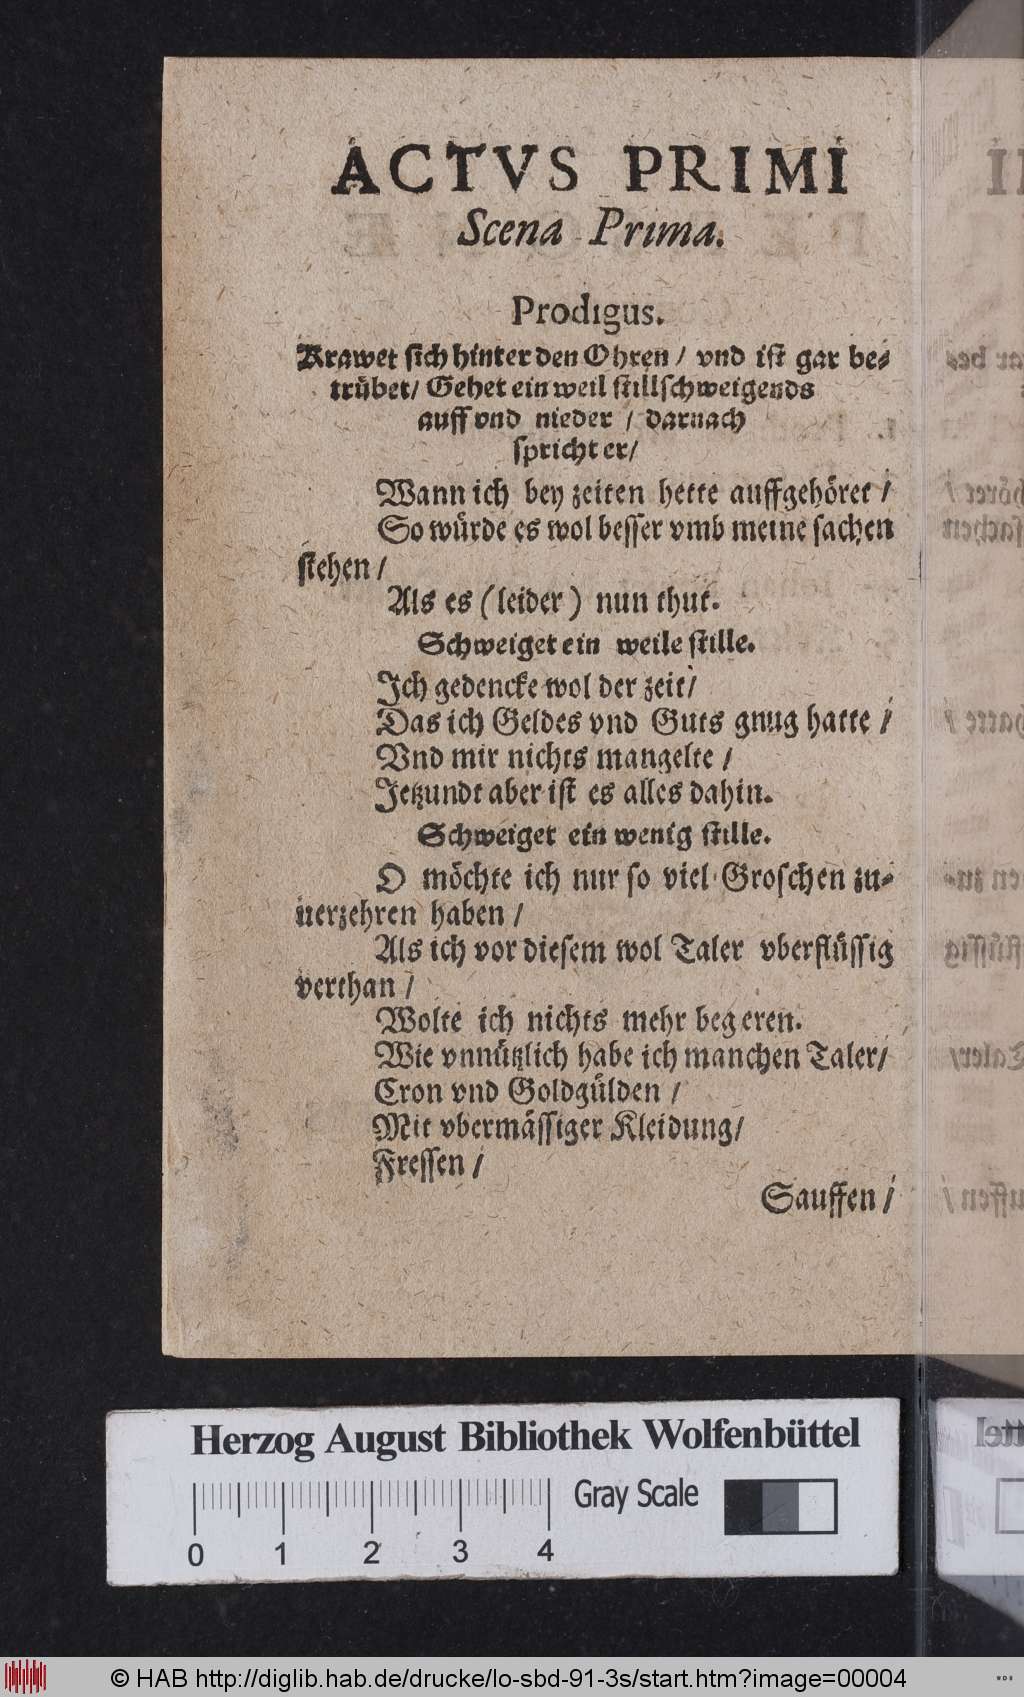 ACTVS PRIMI
Scena Prima.
Prodigus.
Krawet sich hinter den Ohren / vnd ist gar be-
trübet / Gehet ein weil stillschweigends
auff vnd nieder / darnach
spricht er /
Wann ich bey zeiten hette auffgehöret /
So würde es wol besser vmb meine sachen
stehen /
Als es (leider) nun thut.
Schweiget ein weile stille.
Ich gedencke wol der zeit /
Das ich Geldes vnd Guts gnug hatte /
Vnd mir nichts mangelte /
Jetzundt aber ist es alles dahin.
Schweiget ein wenig stille.
O möchte ich nur so viel Groschen zu-
uerzehren haben /
Als ich vor diesem wol Taler vberflüssig
verthan /
Wolte ich nichts mehr begeren.
Wie vnnützlich habe ich manchen Taler /
Cron vnd Goldgülden /
Mit vbermässiger Kleidung /
Fressen /
Sauffen /
Herzog August Bibliothek Wolfenbüttel
Gray Scale
0 1 2 3 4
© HAB http://diglib.hab.de/drucke/lo-sbd-91-3s/start.htm?image=00004